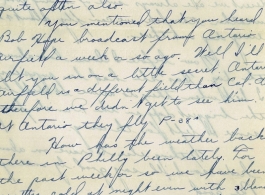 quite often also.
You mentioned that you heard
Bob Hope broadcast from Ontario
airfield a week or so ago. Well I'll
let you in on a little secret, Ontario
airfield is a different field than Cal. A
therefore we didn't get to see him.
At Ontario they fly P-38s
How has the weather back
there in Philly been lately. For
the past week or so we have been
cold at night even with